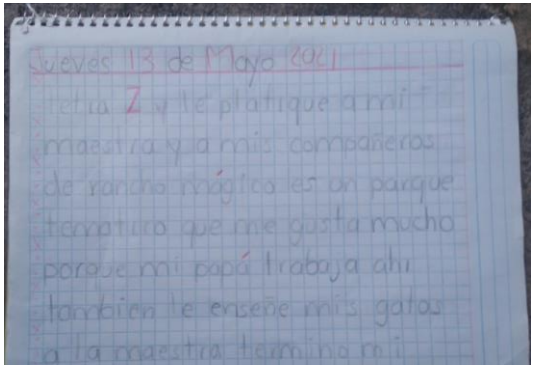 Jueves 13 de Mayo 2021
letra Z y le platique a mi
maestra y a mis compañeros
de rancho mágico es un parque
tematico que me gusta mucho
porque mi papá trabaja ahi
tambien le enseñe mis gatos
a la maestra termino mi